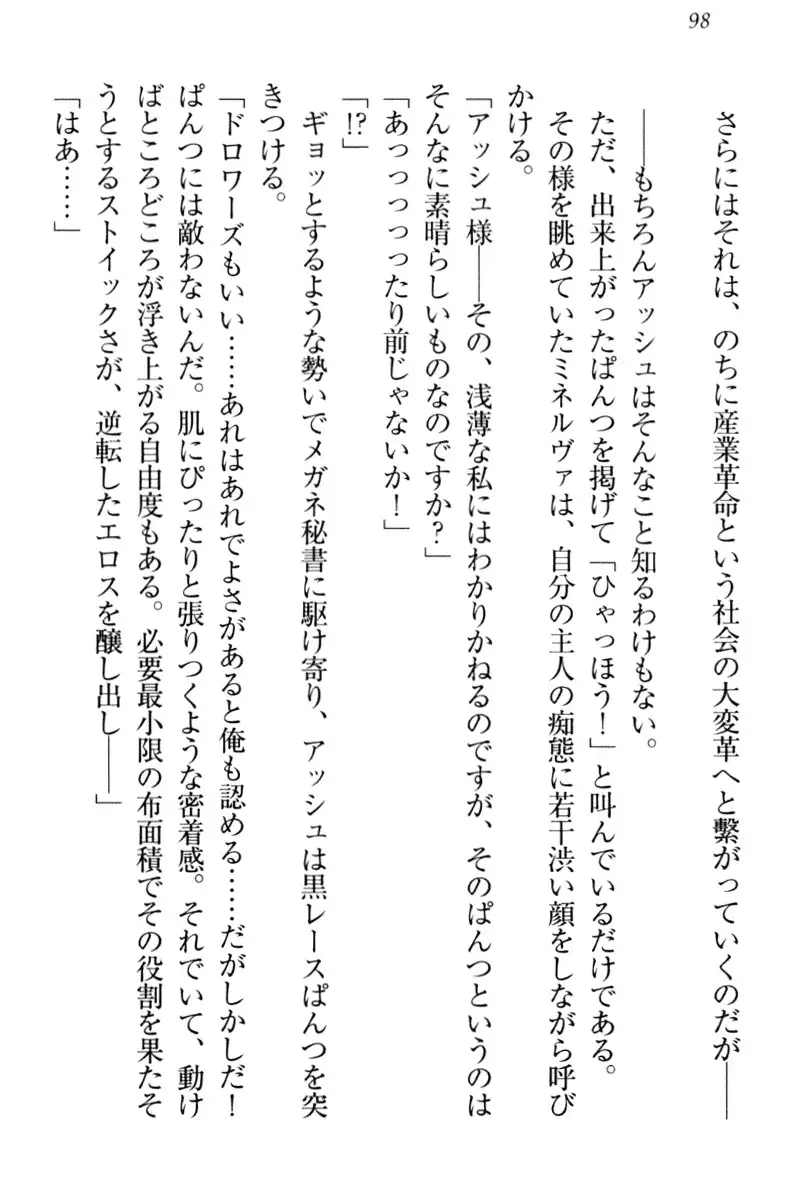 98
さらにはそれは、のちに産業革命という社会の大変革へと繋がっていくのだが――
――もちろんアッシュはそんなこと知るわけもない。
ただ、出来上がったぱんつを掲げて「ひゃっほう！」と叫んでいるだけである。
その様を眺めていたミネルヴァは、自分の主人の痴態に若干渋い顔をしながら呼び
かける。
「アッシュ様――その、浅薄な私にはわかりかねるのですが、そのぱんつというのは
そんなに素晴らしいものなのですか？」
「あっっっっったり前じゃないか！」
「!?」
ギョッとするような勢いでメガネ秘書に駆け寄り、アッシュは黒レースぱんつを突
きつける。
「ドロワーズもいい……あれはあれでよさがあると俺も認める……だがしかしだ！
ぱんつには敵わないんだ。肌にぴったりと張りつくような密着感。それでいて、動け
ばところどころが浮き上がる自由度もある。必要最小限の布面積でその役割を果たそ
うとするストイックさが、逆転したエロスを醸し出し――」
「はあ……」